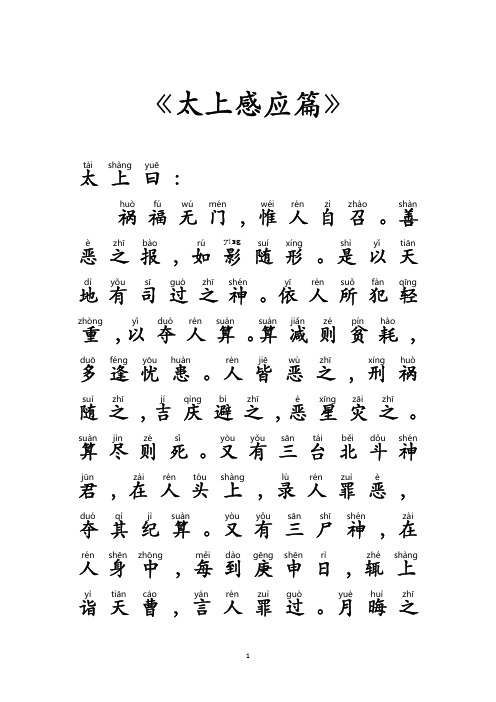 《太上感应篇》
tài shàng yuē
太上曰：
huò fú wú mén wéi rén zì zhào shàn
祸福无门，惟人自召。善
è zhī bào rú suí xíng shì yǐ tiān
恶之报，如影随形。是以天
dì yǒu sī guò zhī shén yī rén suǒ fàn qīng
地有司过之神。依人所犯轻
zhòng yǐ duó rén suàn suàn jiǎn zé pín hào
重，以夺人算。算减则贫耗，
duō féng yōu huàn rén jiē wù zhī xíng huò
多逢忧患。人皆恶之，刑祸
suí zhī jí qìng bì zhī è xīng zāi zhī
随之，吉庆避之，恶星灾之。
suàn jìn zé sǐ yòu yǒu sān tái běi dǒu shén
算尽则死。又有三台北斗神
jūn zài rén tóu shàng lù rén zuì è
君，在人头上，录人罪恶，
duó qí jì suàn yòu yǒu sān shī shén zài
夺其纪算。又有三尸神，在
rén shēn zhōng měi dào gēng shēn rì zhé shàng
人身中，每到庚申日，辄上
yì tiān cáo yán rén zuì guò yuè huì zhī
诣天曹，言人罪过。月晦之
1